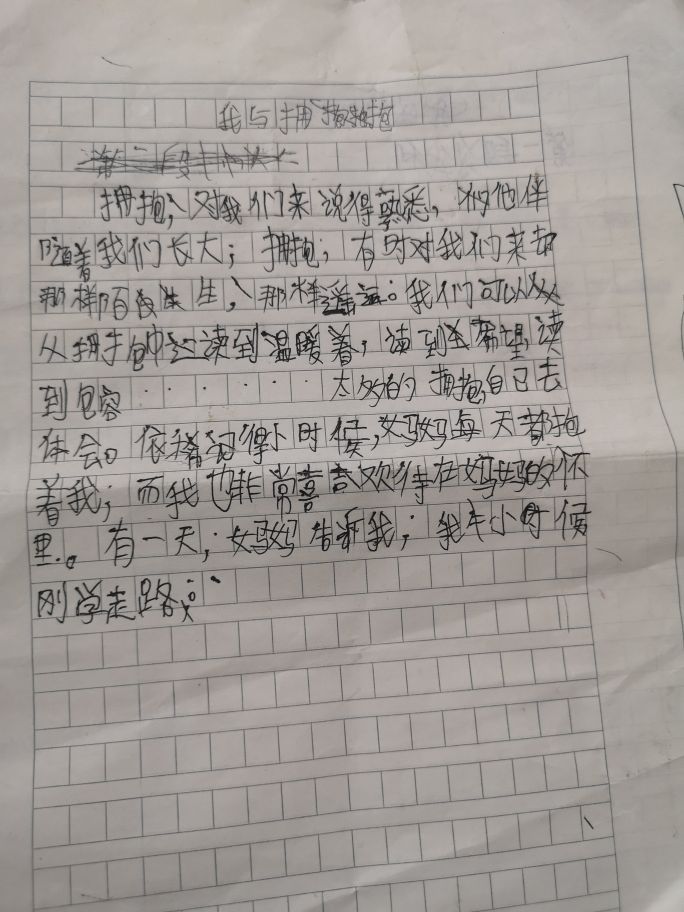 我与拥抱
拥抱，对我们来说得熟悉，他伴
随着我们长大；拥抱；有时对我们来却
那样陌生，那样遥远。我们可以从
从拥抱中读到温暖着，读到希望读
到包容······太多的拥抱自己去
体会。依稀记得小时候，妈妈每天都抱
着我；而我也非常喜欢待在妈妈的怀
里。有一天，妈妈告诉我；我小时候
刚学走路